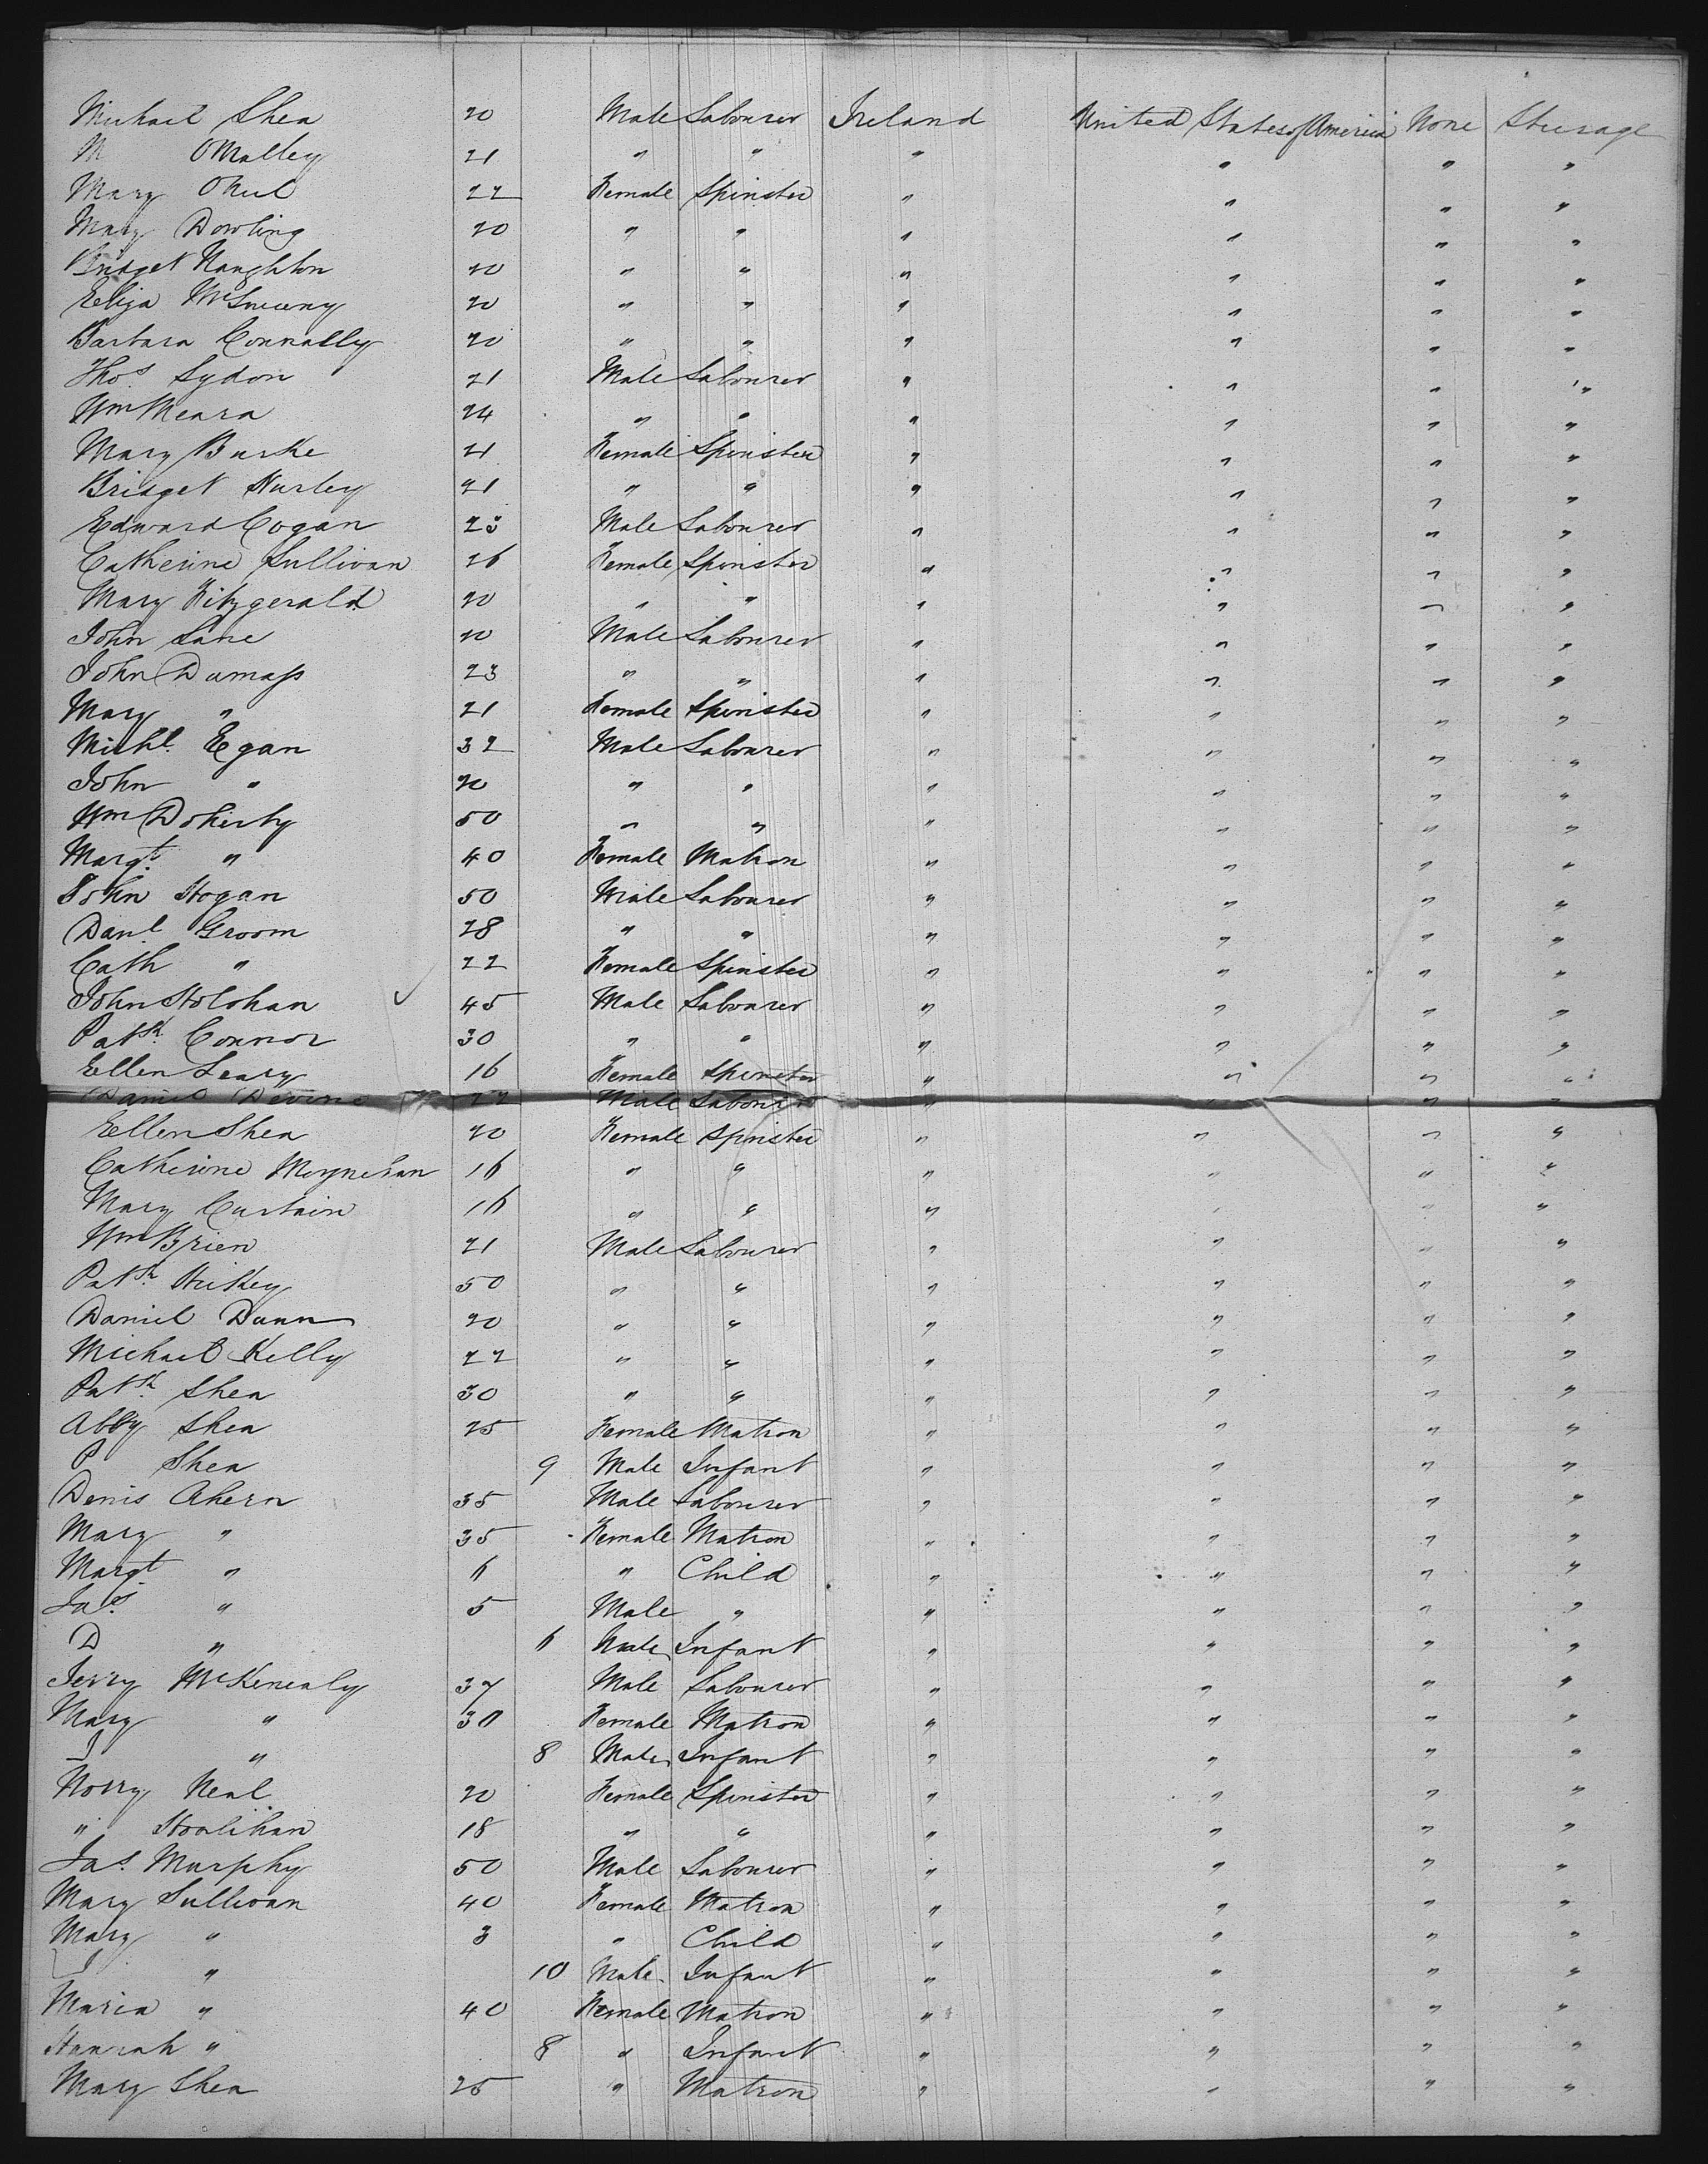 Michael Shea 20 Male Labourer Ireland United States of America None Steerage
M OMalley 21 " " " " " "
Mary ONeil 22 Female Spinster " " " "
Mary Dowling 20 " " " " " "
Bridget Naughton 20 " " " " " "
Eliza McSweeny 20 " " " " " "
Barbara Connally 20 " " " " " "
Thos. Lydon 21 Male Labourer " " " "
Wm Meara 24 " " " " " "
Mary Burke 21 Female Spinster " " " "
Bridget Hurley 21 " " " " " "
Edward Cogan 23 Male Labourer " " " "
Catherine Sullivan 26 Female Spinster " " " "
Mary Fitzgerald 20 " " " " " "
John Lane 20 Male Labourer " " " "
John Dumass 23 " " " " " "
Mary " 21 Female Spinster " " " "
Michl. Egan 32 Male Labourer " " " "
John " 20 " " " " " "
Wm Doherty 50 " " " " " "
Margt. " 40 Female Matron " " " "
John Hogan 50 Male Labourer " " " "
Danl. Groom 28 " " " " " "
Cath " 22 Female Spinster " " " "
John Holohan 45 Male Labourer " " " "
Patk. Connor 30 " " " " " "
Ellen Leary 16 Female Spinster " " " "
Daniel Devine 22 Male Labourer " " " "
Ellen Shea 20 Female Spinster " " " "
Catherine Moynehan 16 " " " " " "
Mary Curtain 16 " " " " " "
Wm Brien 21 Male Labourer " " " "
Patk. Hickey 50 " " " " " "
Daniel Dunn 20 " " " " " "
Michael Kelly 22 " " " " " "
Patk. Shea 30 " " " " " "
Abby Shea 25 Female Matron " " " "
P Shea 9 Male Infant " " " "
Denis Ahern 35 Male Labourer " " " "
Mary " 35 Female Matron " " " "
Margt " 6 " Child " " " "
Jas. " 5 Male " " " " "
D " 6 Male Infant " " " "
Jerry McKenealy 37 Male Labourer " " " "
Mary " 30 Female Matron " " " "
J " 8 Male Infant " " " "
Norry Neal 20 Female Spinster " " " "
" Hoolihan 18 " " " " " "
Jas. Murphy 50 Male Labourer " " " "
Mary Sullivan 40 Female Matron " " " "
Mary " 3 " Child " " " "
J " 10 Male Infant " " " "
Maria " 40 Female Matron " " " "
Hannah " 8 " Infant " " " "
Mary Shea 25 " Matron " " " "